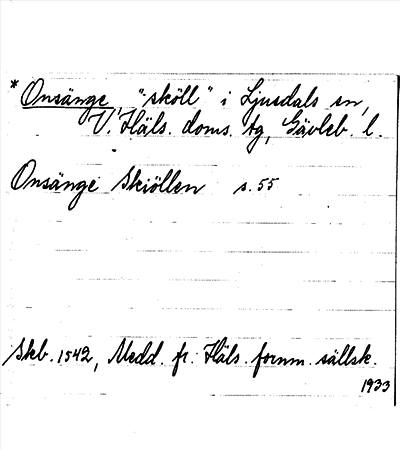 * Onsänge, "sköll" i Ljusdals sn,
V. Häls. doms. tg, Gävleb. l.
Onsänge Skiöllen s. 55
Skb. 1542, Medd. fr. Häls. fornm. sällsk.
1933